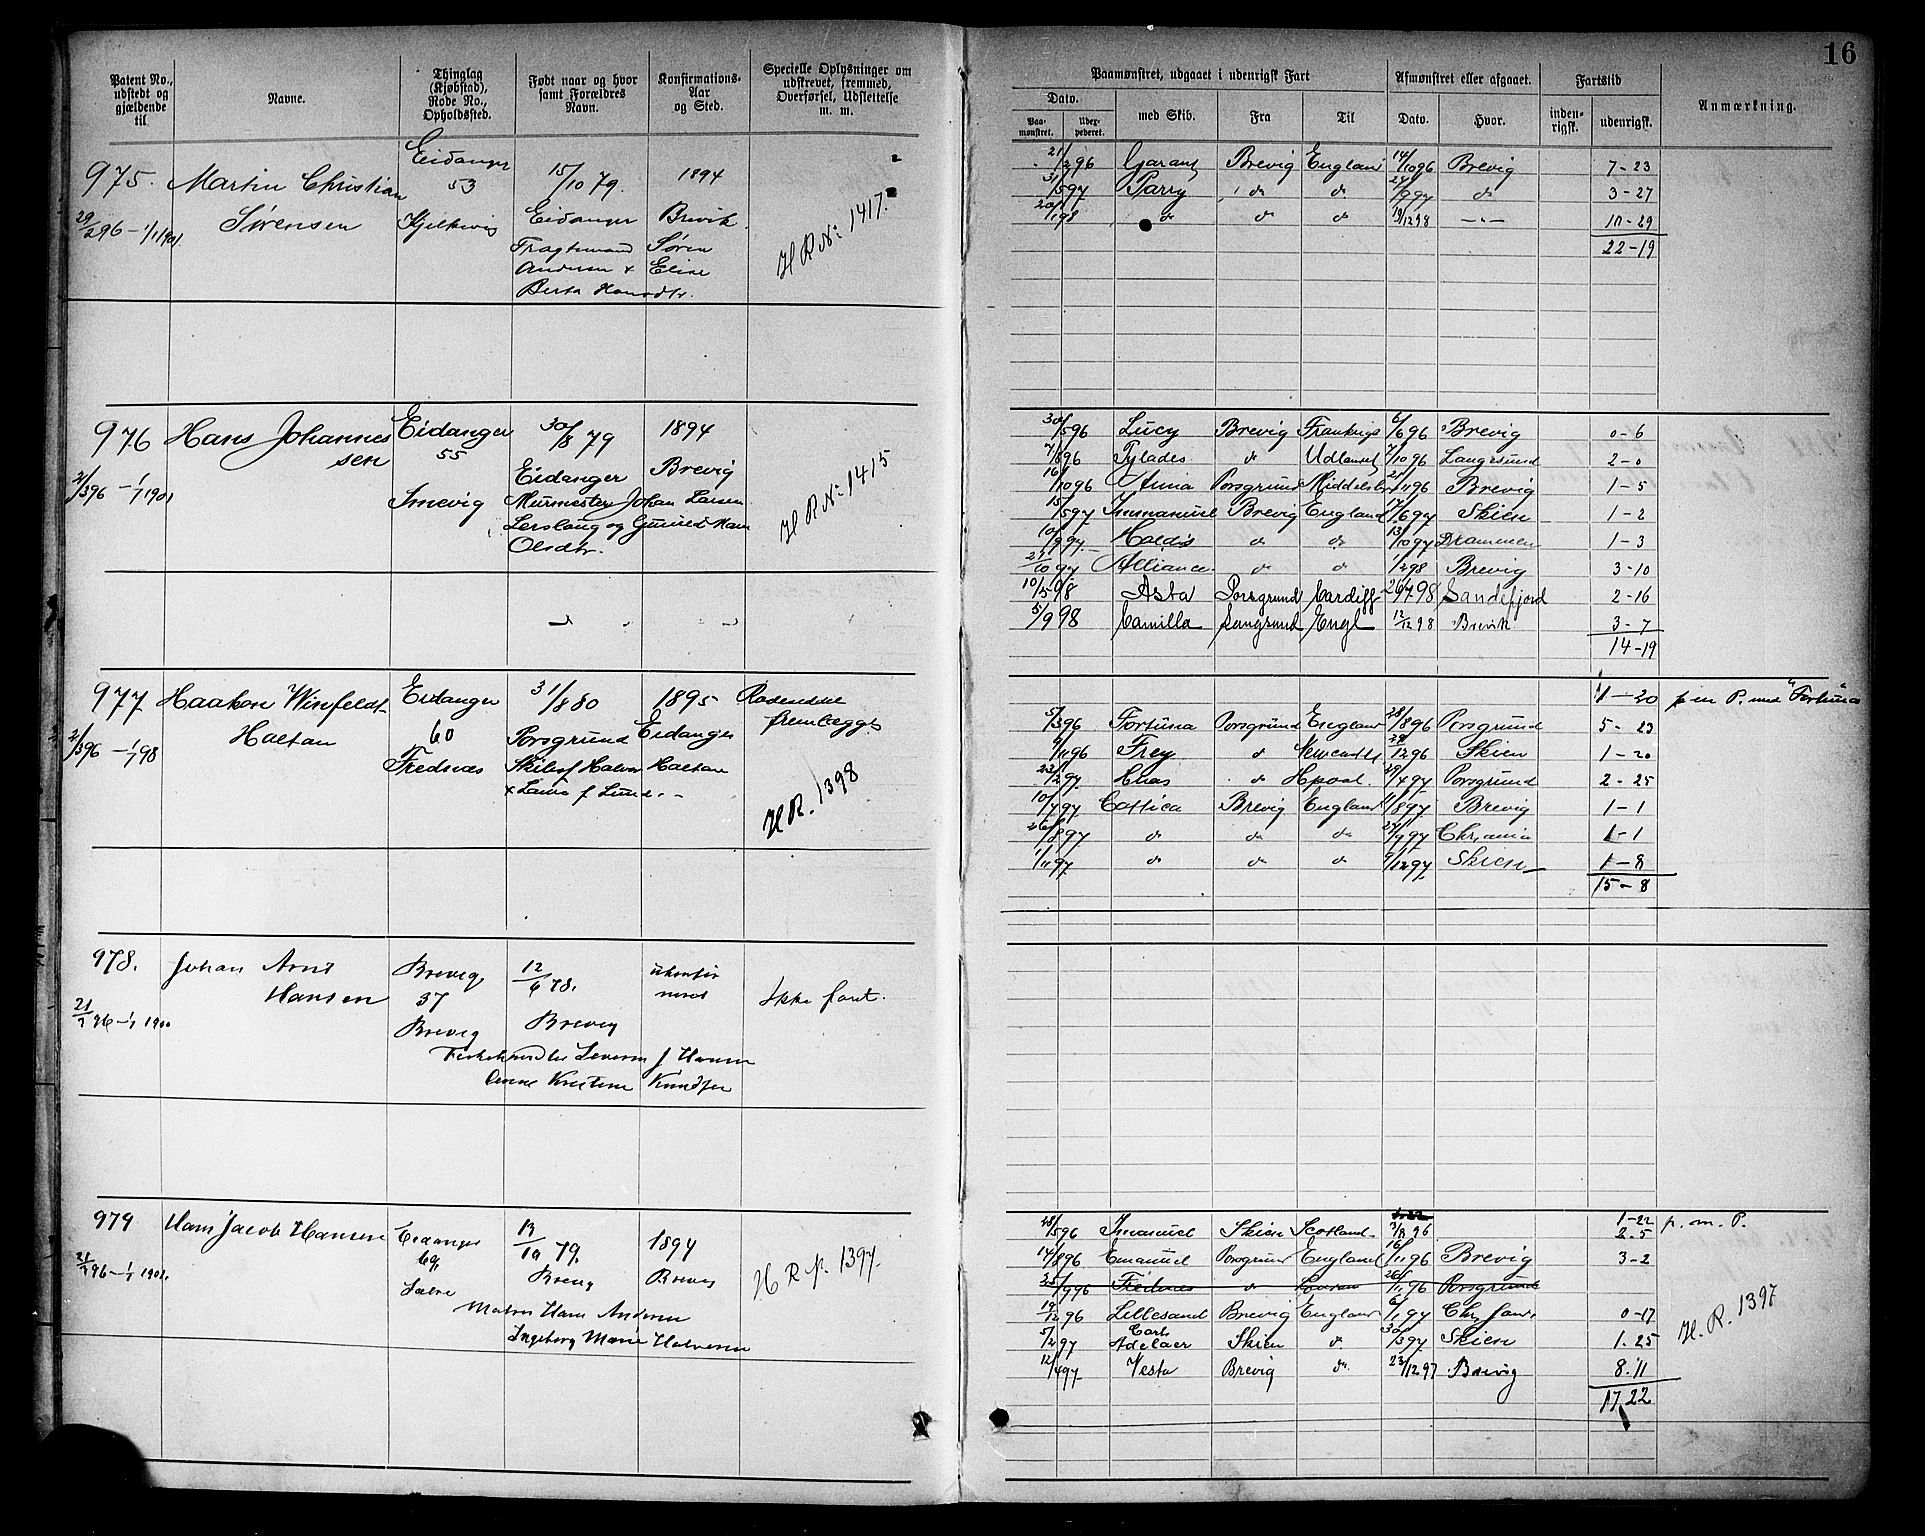 16
Patent No., udstedt og gjældende til
Navne.
Thinglag (Kjøbstad), Rode No., Opholdssted.
Født naar og hvor samt Forældres Navn.
Konfirmations-Aar og Sted.
Specielle Oplysninger om udskrevet, fremmed, Overførsel, Udslettelse m. m.
Paamønstret, udgaaet i udenrigsk Fart
Afmønstret eller afgaaet.
Fartstid
Anmærkning.
Dato.
Paa-mønstret.
Udex-pederet.
med Skib.
Fra
Til
Dato.
Hvor.
inden-rigsk.
udenrigsk.
975. Martin Christian Eidanger 15/10 79. 1894
29/2 96 – 1/1 1901 Sørensen 53 Eidanger Brevik
Kjelkevig Fragtemand Søren
Andersen + Elise
Berta Hansdtr.
H R No 1417.
21/2 96 Garant Brevig England 14/10 96 Brevig 7-23
31/5 97 Parry do do 27/9 97 do 3-27
20/1 98 do do do 19/12 98 – " – 10-29
22-19
976 Hans Johannes Eidanger 30/8 79 1894
sen 55 Eidanger Brevig
21/3 96 – 1/7 1901 Smevig Murmester Johan Larsen
Lerslaug og Gunild Mari
Olsdtr.
H R No 1415
30/5 96 Lucy Brevig Frankrig 6/6 96 Brevig 0-6
7/8 96 Pylades do Udlandet 7/10 96 Langesund 2-0
16/10 96 Anna Porsgrund Middelsbr 21/11 96 Brevig 1-5
15/5 97 Immanuel Brevig England 17/6 97 Skien 1-2
10/9 97 Haldis do do 13/10 97 Drammen 1-3
21/10 97 Alliance do do 1/2 98 Brevig 3-10
10/5 98 Asta Porsgrund Cardiff 26/7 98 Sandefjord 2-16
5/9 98 Camilla Langsund Engl 12/12 98 Brevik 3-7
14-19
977 Haakon Winfeldt Eidanger 31/8 80 1895
Haltan 60 Porsgrund Eidanger
21/3 96 – 1/7 98 Frednæs Skibsf Halvor Haltan
+ Laura f Lund. -
Rodeseddel
fremlægges
H R. 1398
1-20 p in P. med "Fortuna"
5/3 96 Fortuna Porsgrund England 28/8 96 Porsgrund 5-23
9/11 96 Frey do Newcastle 29/12 96 Skien 1-20
23/2 97 do Hpool. 29/4 97 Porsgrund 2-25
10/7 97 Cattica Brevig England 11/8 97 Brevig 1-1
26/8 97 do do do 27/9 97 Chr,ania 1-1
1/11 97 do do do 9/12 97 Skien 1-8
15-8
978. Johan Arnt Brevig 12/6 78. ukonfir
Hansen 37 meret
21/3 96 – 1/7 1900 Brevig Brevig
Fiskehandler Severin J Hansen
Anne Kristine Knudsen
Ikke faret.
979 Hans Jacob Hansen Eidanger 13/10 79. 1894
69 Brevig Brevig
21/3 96 – 1/7 1901.
Matros Hans Andersen
Ingeborg Marie Halvorsen
H R p. 1397.
28/5 96 Immanuel Skien Scotland. 3/8 96 1-22 p. m. P.
2-5
14/8 96 Emanuel Porsgrund England 16/11 96 Brevig 3-2
25/9 96 Frednes do London 26/11 96 Porsgrund
19/12 96 Lillesand Brevig England 6/1 97 0-17
5/2 97 Carl Adelaer Skien do 30/3 97 Skien 1-25
12/4 97 Vesta Brevig do 23/12 97 Brevig 8.11
17.22
H. R. 1397